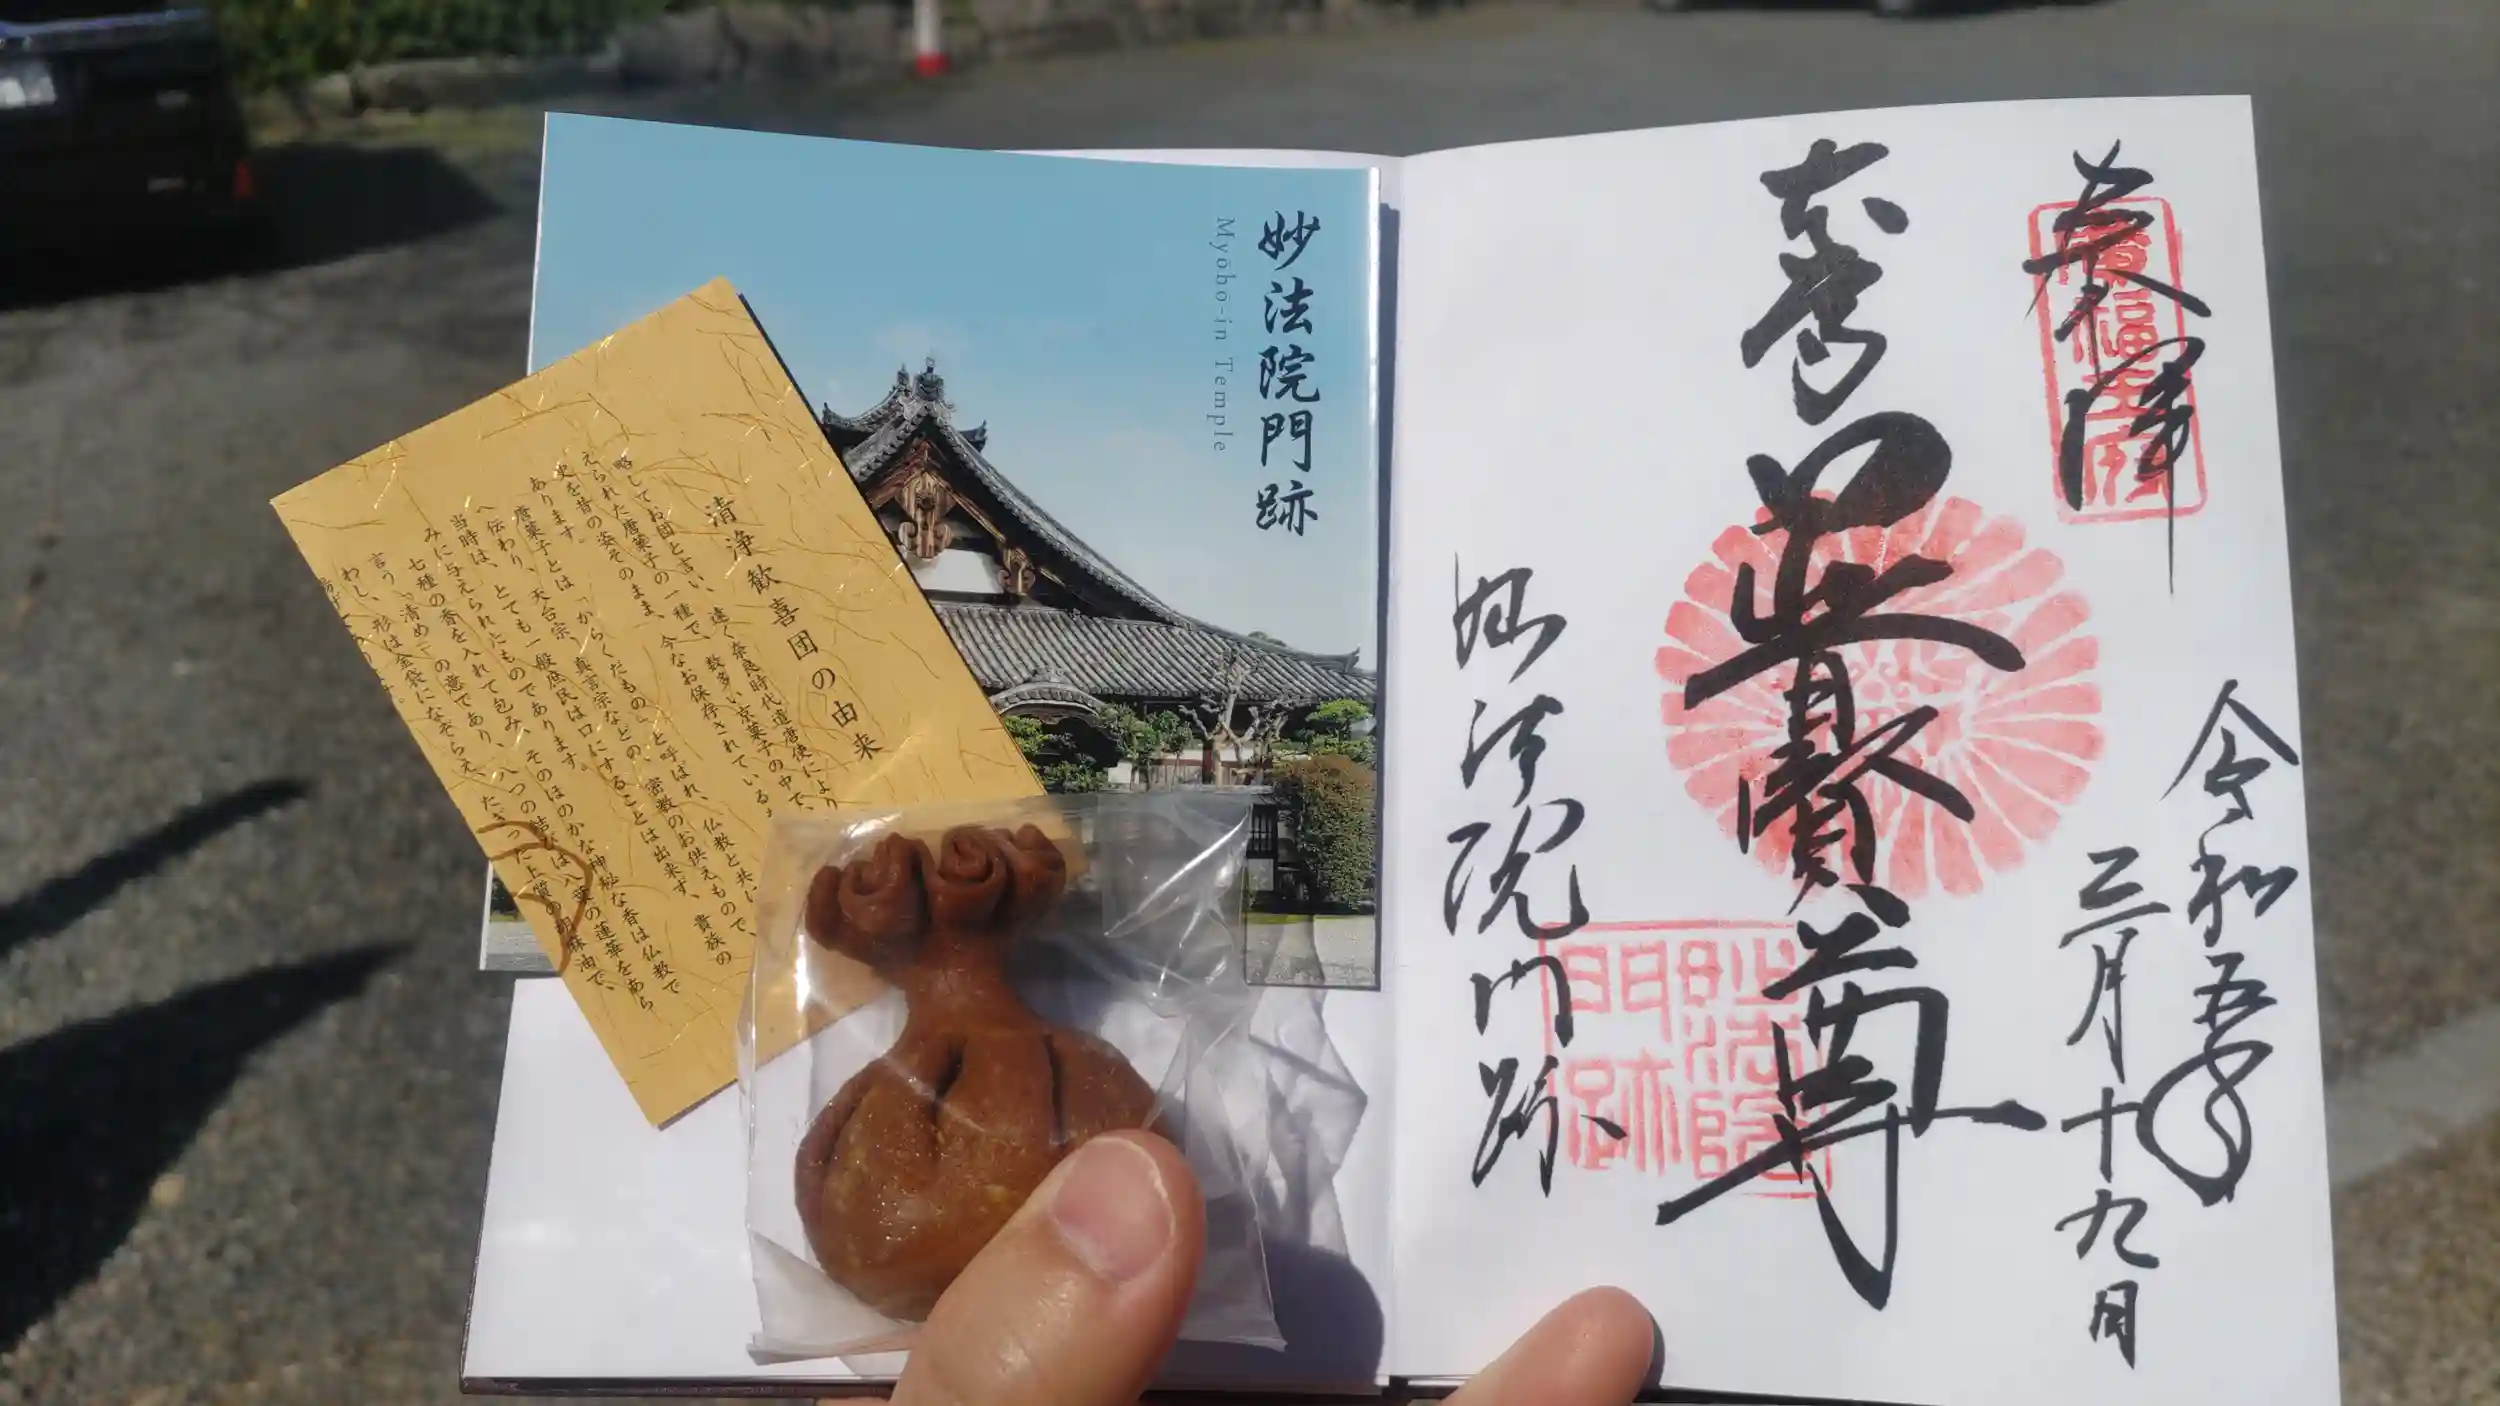 妙法院門跡
Myōhō-in Temple
清浄歓喜団の由来
略してお団と言い、遠く奈良時代遣唐使により
えられた唐菓子の一種で、数多い京菓子の中で、
史を昔の姿そのまま、今なお保存されている
あります。
唐菓子とは「からくだもの」と呼ばれ、仏教と共に
へ伝わり、天台宗、真言宗などの、密教のお供えもので、
当時は、とても一般庶民は口にすることは出来ず、貴族の
みに与えられたものであります。
七種の香を入れて包み、そのほのかな神秘な香は仏教で
言う「清め」の意であり、八つの結びは八葉の蓮華をあら
わし、形は金袋になぞらえ、たぎった上質の胡麻油で、
奉拝
令和五年
三月十九日
普賢尊
妙法院門跡
妙法院
門跡